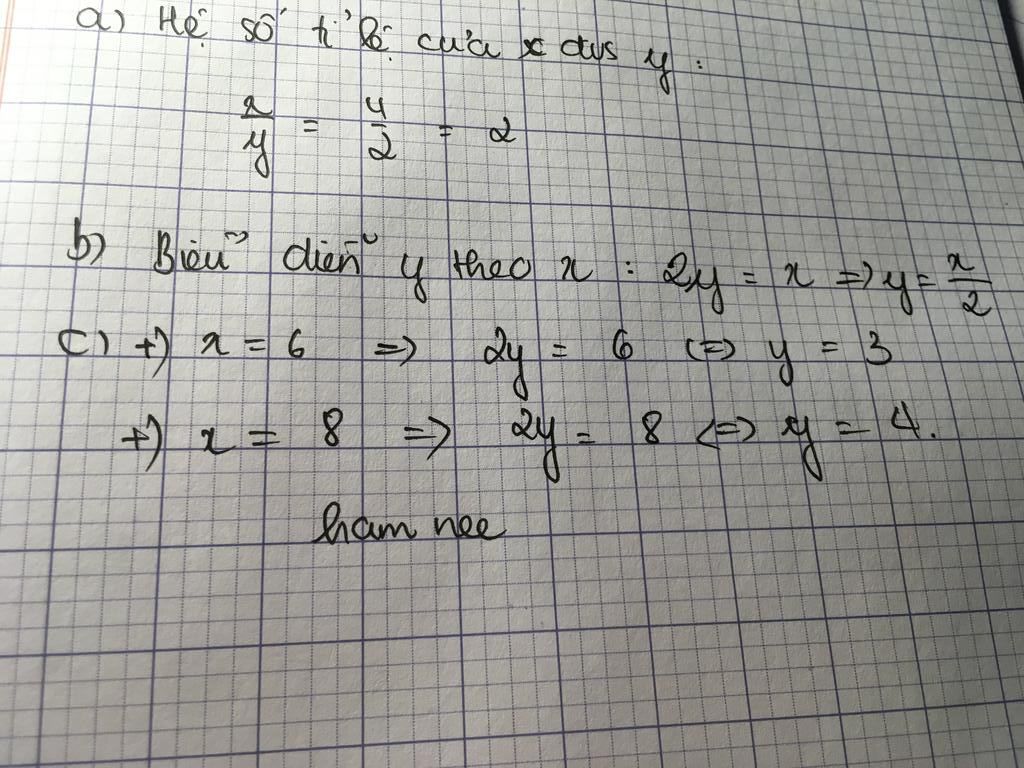 a) Hệ số tỉ lệ của x đvs y :
x/y = 4/2 = 2
b) Biểu diễn y theo x : 2y = x => y = x/2
c) +) x = 6 => 2y = 6 <=> y = 3
+) x = 8 => 2y = 8 <=> y = 4.
ham nee